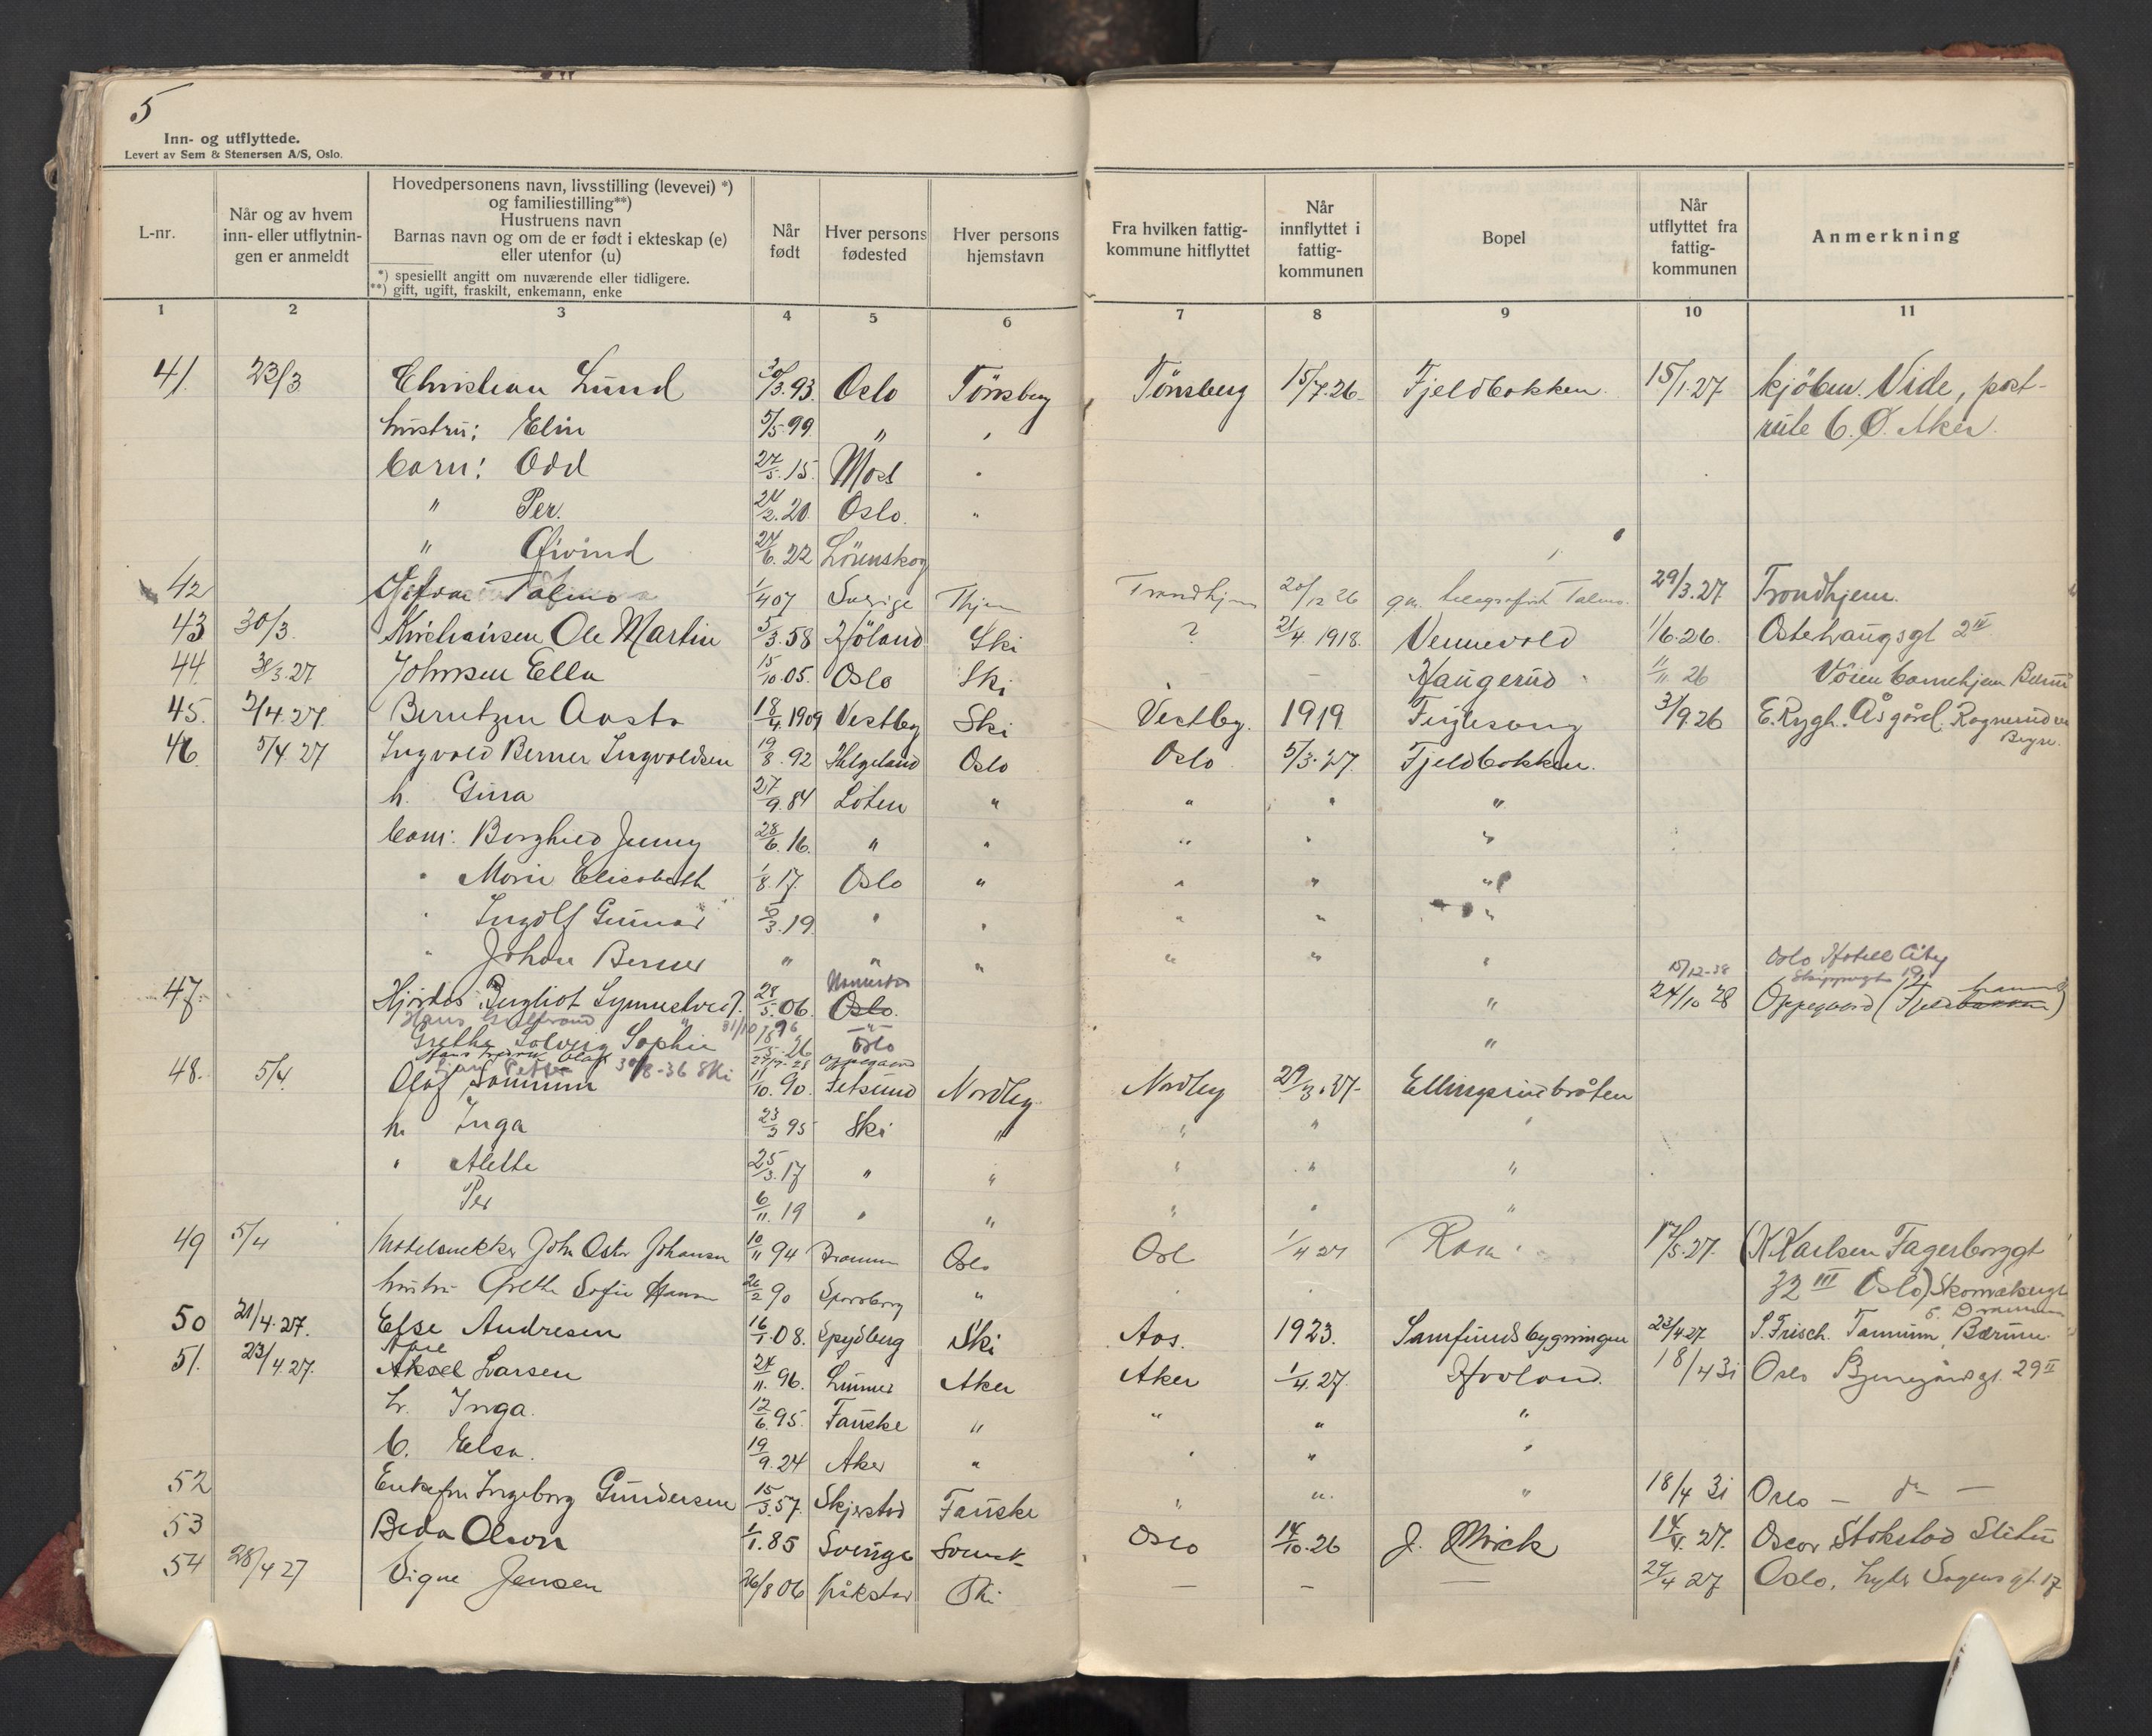 5
Inn- og utflyttede.
Levert av Sem & Stenersen A/S, Oslo.
L-nr.
Når og av hvem inn- eller utflytnin-gen er anmeldt
Hovedpersonens navn, livsstilling (levevei) *) og familiestilling**)
Hustruens navn
Barnas navn og om de er født i ekteskap (e) eller utenfor (u)
*) spesiellt angitt om nuværende eller tidligere.
**) gift, ugift, fraskilt, enkemann, enke
Når født
Hver persons fødested
Hver persons hjemstavn
Fra hvilken fattig-kommune hitflyttet
Når innflyttet i fattig-kommunen
Bopel
Når utflyttet fra fattig-kommunen
Anmerkning
1 2 3 4 5 6 7 8 9 10 11
41. 23/3 Christian Lund 30/3.93. Oslo Tönsberg Tönsberg 15/7.26. Fjeldbakken. 15/1.27 kjöbm. Vide, post-
hustru: Elin 5/5.99. " rute 6. Ø. Aker.
barn: Odd 27/5.15. Moss "
" Per. 24/2.20. Oslo. "
" Öivind 24/6.22 Lörenskog
42 Talmo 1/4 07 Sverige Thjem Trondhjem 20/12 26 telegrafist Talmo. 29/3.27 Trondhjem.
43 30/3. Ole Martin 5/3.58 Höland Ski ? 21/4.1918. Vennevold 1/6.26. 2 II
44. 31/3.27 Johnsen Ella 15/10.05. Oslo Ski – – Haugerud 11/11 26 Vöien barnehjem Bærum
45. 2/4.27. Berntzen Aasta 18/4.1909 Vestby Ski Vestby. 1919. Fuglesang 3/9 26 E. Rygh. Åsgård
46. 5/4.27 Ingvald Berner Ingvaldsen 19/8.92 Helgeland Oslo Oslo 5/3.27. Fjeldbakken.
h. Gina 27/9.84 Löten " " " "
barn: Borghild Jenny 28/6.16. " " " " "
" Marie Elisabeth 1/8.17. Oslo " " " "
" Ingolf Gunnar 5/3.19. " " " " "
" Johan Berner " " " " " "
15/12-38 Oslo Hotell City
47. Hjördis 28/5.06. Oslo. " 24/10 28 Oppegaard
Grethe Solveig Sophie Oslo "
Oppegaard
48. 5/4. Olaf 11/10.90. Fetsund Nordby Nordby 29/3.27. Ellingsrudbråten
h. Inga 23/3 95 Ski " " " "
" Alette 25/3.17 " " " " "
Per 6/11.19 " " " " "
49 5/4 John Johansen 10/11 94 Oslo Osl 1/4 27 17/5.27. (K. Karlsen Fagerborggt
hustru Grethe Sofie Hansen 26/2 90 " 32 III Oslo)
50 21/4.27. Else Andresen 16/1.08. Spydberg Ski Aas. 1923. Samfundsbygningen 23/4 27 S. Frisch. Tanum, Bærum.
51. 23/4.27. Aksel Larsen 24/11.96. Lunner Aker Aker 1/4.27. Hovland. 18/4 31 Oslo 29 II
h. Inga. 12/6.95. Fauske " " " "
b. Elsa. 19/9.24 Aker " " " "
52 Enkefru Ingeborg Gundersen 15/3.57. Skjerstad Fauske " " " 18/4 31 Oslo – do –
53 Beda Olson 1/1.85 Sverige Svensk Oslo 14/10.26 J. Mörck 27. Oscar Stokstad
54 28/4 27 Signe Jensen 26/8 06 Kråkstad Ski – – – 24/4 27 Oslo, Lyder Sagens gt. 17